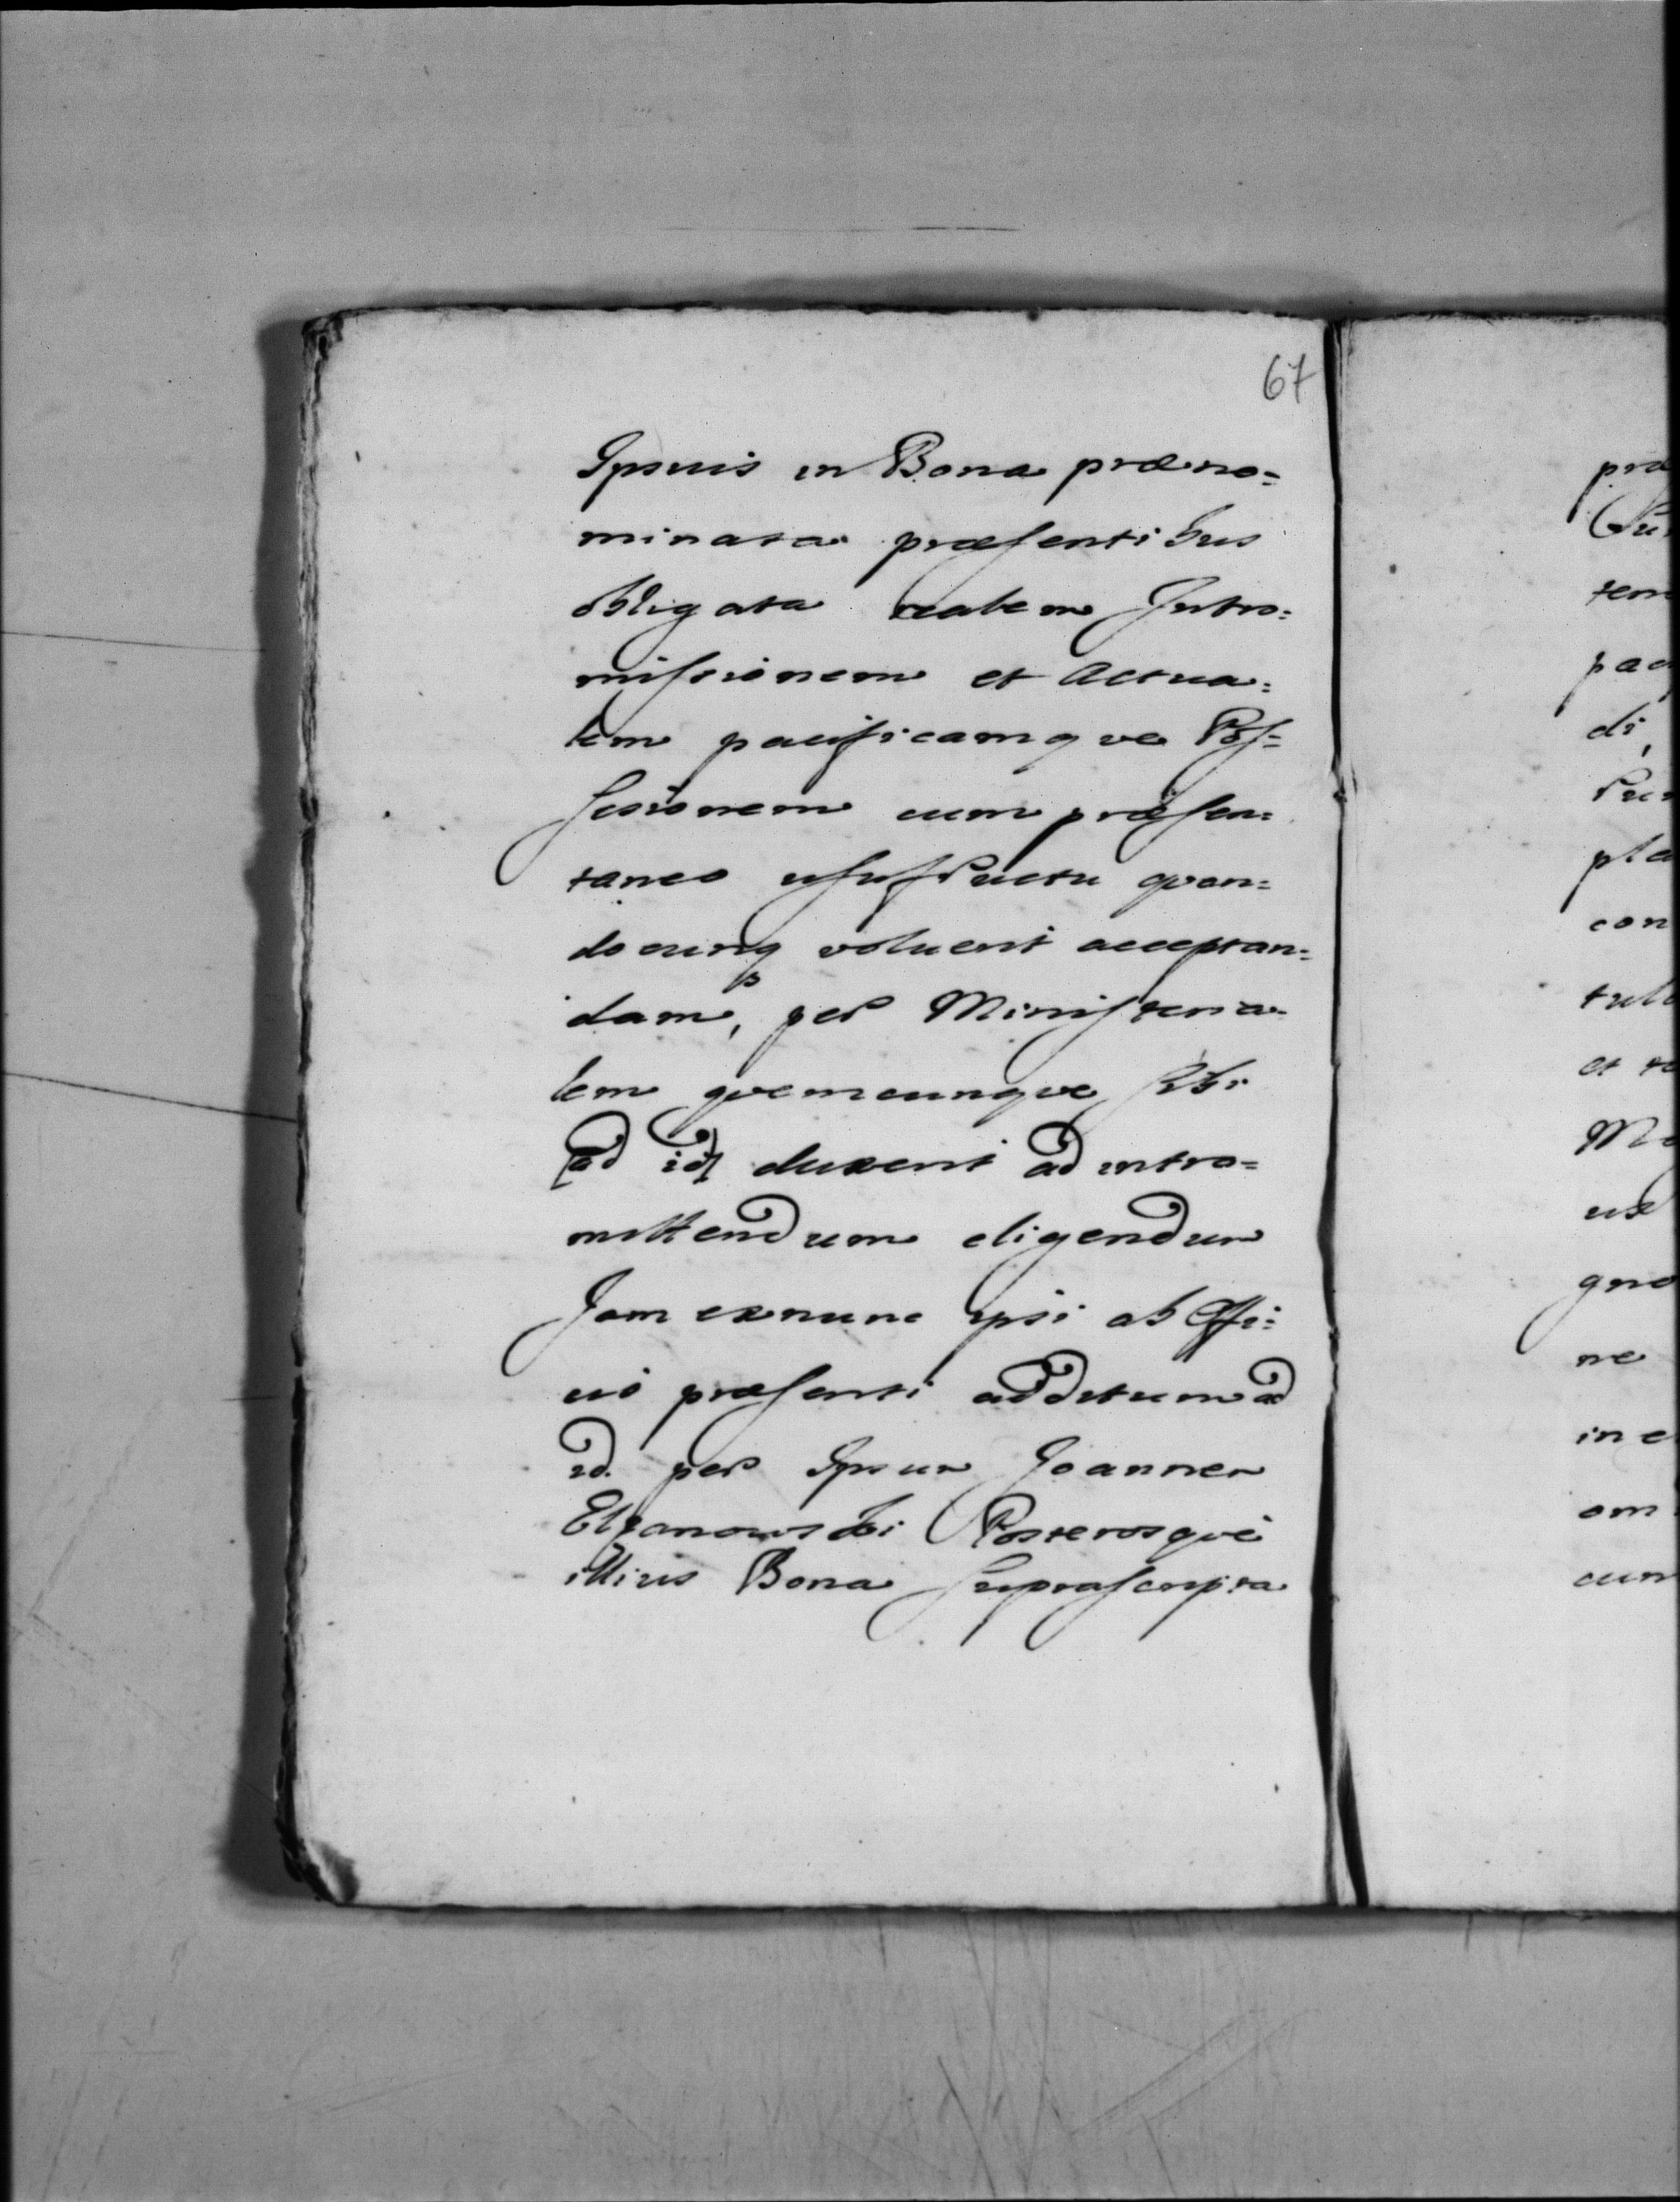 67
Ipsius in Bona præno=
minata præsentibus
obligata realem Intro=
missionem et Actua=
lem pacificamque Pos=
sesionem cum præsen=
taneo usufructu quan=
documq voluerit acceptan=
dam, per Ministeria=
lem quemcunque sibi
[ad id] duxerit ad intro=
mittendum eligendum
Jam exnunc ipsi ab Offi=
cio præsenti additum ad
id per Ipsum Joannem
Elzanowski Posterosque
illius Bona suprascripta
præ
tem
pac
di,
pla
con
tul
et
ux
gno
ne
in
om
cum